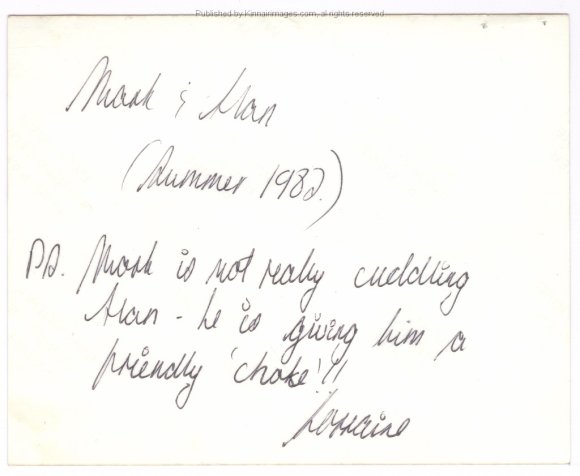 Published by Kinnairimages.com, all rights reserved
Mark & Alan
(Summer 1982.)
P.S. Mark is not really cuddling
Alan - he is giving him a
friendly 'choke'!!
Lorraine